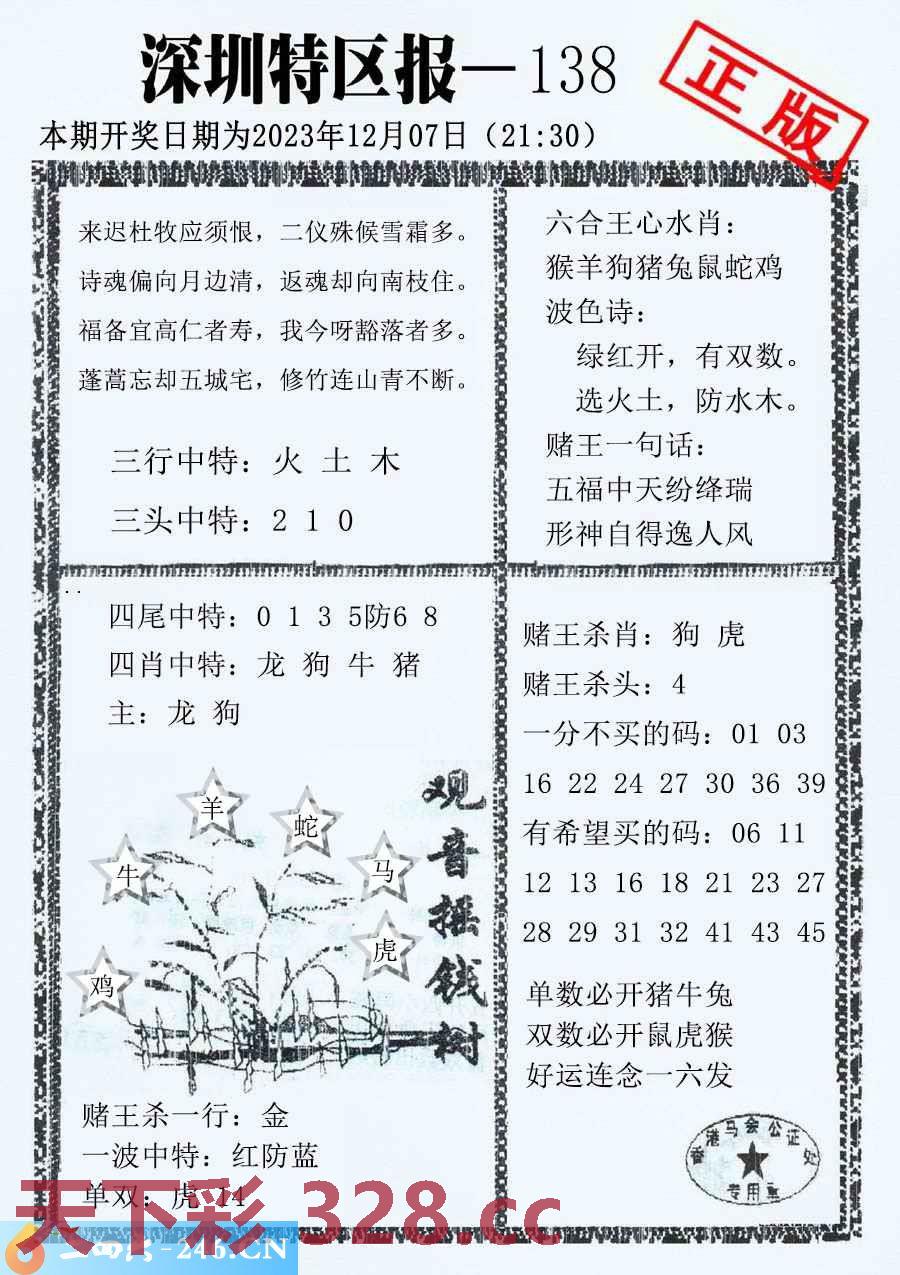 深圳特区报—138
正版
本期开奖日期为2023年12月07日（21:30）
来迟杜牧应须恨，二仪殊候雪霜多。
诗魂偏向月边清，返魂却向南枝住。
福备宜高仁者寿，我今呀豁落者多。
蓬蒿忘却五城宅，修竹连山青不断。
三行中特：火 土 木
三头中特：2 1 0
六合王心水肖：
猴羊狗猪兔鼠蛇鸡
波色诗：
绿红开，有双数。
选火土，防水木。
赌王一句话：
五福中天纷绛瑞
形神自得逸人风
四尾中特：0 1 3 5防6 8
四肖中特：龙 狗 牛 猪
主：龙 狗
羊
蛇
牛
马
虎
鸡
观音摇钱树
赌王杀一行：金
一波中特：红防蓝
单双：虎 14
赌王杀肖：狗 虎
赌王杀头：4
一分不买的码：01 03
16 22 24 27 30 36 39
有希望买的码：06 11
12 13 16 18 21 23 27
28 29 31 32 41 43 45
单数必开猪牛兔
双数必开鼠虎猴
好运连念一六发
香港马会公证处
专用章
天下彩 328.cc
-246.CN